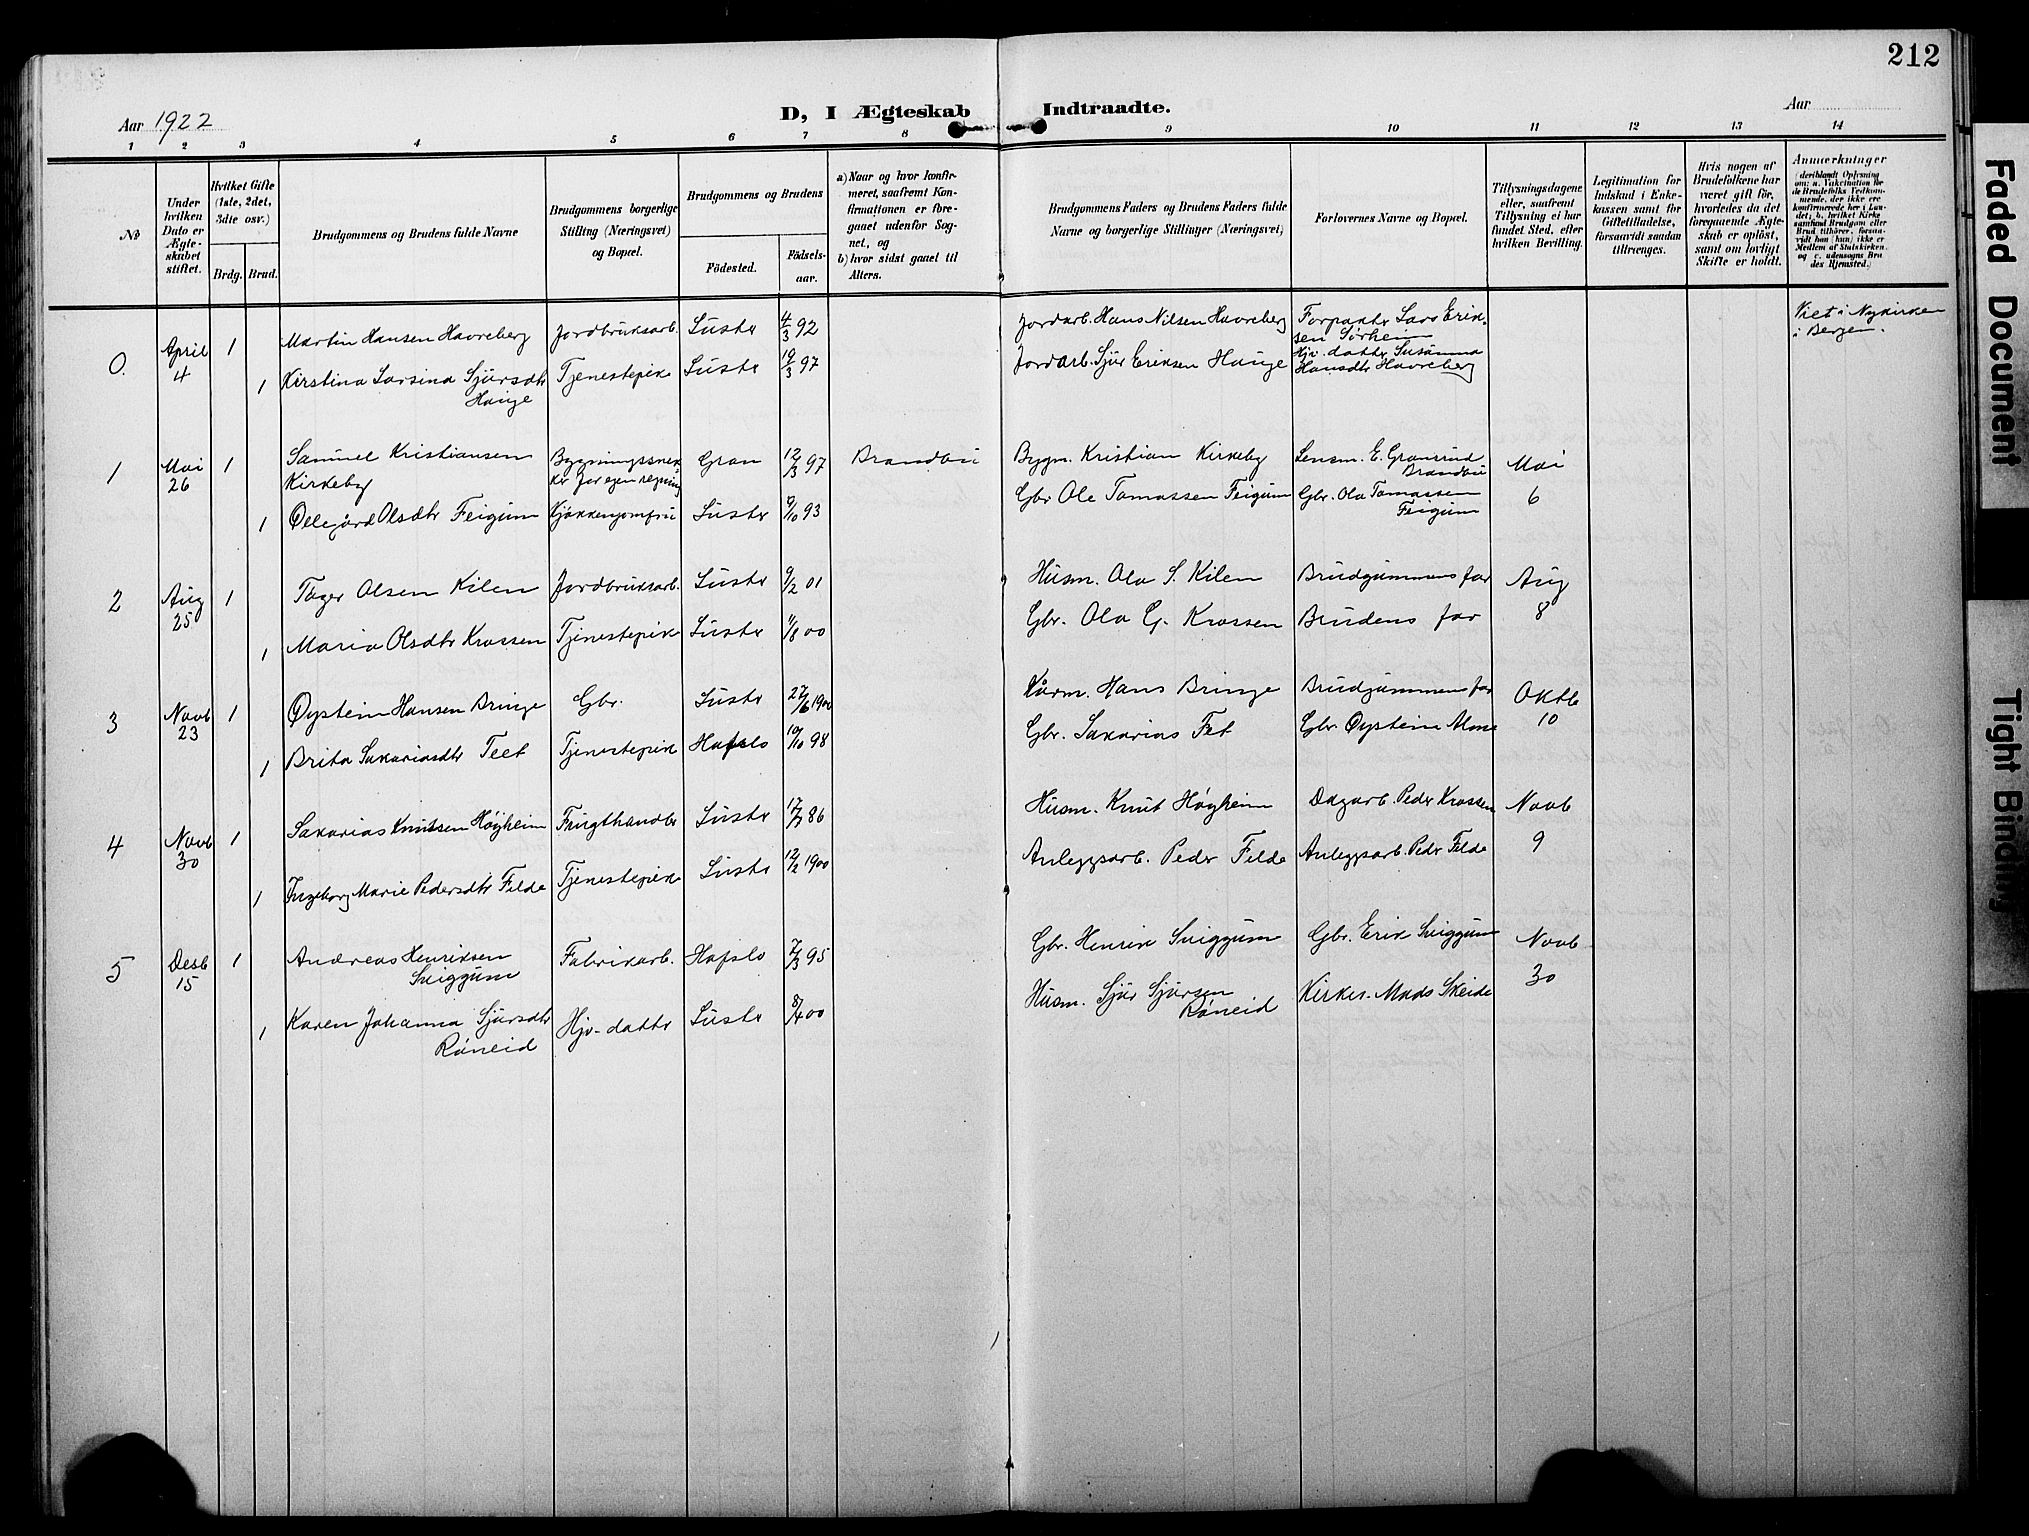 212
Aar 1922
D, I Ægteskab Indtraadte.
Aar
1 2 3 4 5 6 7 8 9 10 11 12 13 14
No
Under hvilken Dato er Ægteskabet stiftet.
Hvilket Gifte (1ste, 2det, 3die osv.)
Brdg. Brud.
Brudgommens og Brudens fulde Navne
Brudgommens borgerlige Stilling (Næringsvei) og Bopæl.
Brudgommens og Brudens
Födested. Födselsaar.
a) Naar og hvor konfirmeret, saafremt Konfirmationen er foregaaet udenfor Sognet, og
b) hvor sidst gaaet til Alters.
Brudgommens Faders og Brudens Faders fulde Navne og borgerlige Stillinger (Næringsvei)
Forlovernes Navne og Bopæl.
Tillysningsdagene eller, saafremt Tillysning ei har fundet Sted, efter hvilken Bevilling.
Legitimation for Indskud i Enkekassen samt for Giftetilladelse, forsaavidt saadan tiltrænges.
Hvis nogen af Brudefolkene har været gift för, hvorledes da det foregaaende Ægteskab er oplöst, samt om lovligt Skifte er holdt.
Anmærkninger
(deriblandt Oplysning om: a. Vakcination for de Brudefolks Vedkommende, der ikke ere konfirmerede her i Landet; b. hvilket Kirkesamfund Brudgom eller Brud tilhörer, forsaavidt han (hun) ikke er Medlem af Statskirken, og c. udensogns Brudes Hjemsted.)
0. April 4 1 Martin Hansen Havreberg Jordbruksarb. Luster 4/3 92 Jordarb. Hans Nilsen Havreberg Forpakter Lars Eriksen Sørheim Viet i Nykirken i Bergen.
1 Kirstina Larsina Sjursdtr Hauge Tjenestepike Luster 19/3 97 Jordarb. Sjur Eriksen Hauge Hjv. datter Susanna Hansdtr Havreberg
1 Mai 26 1 Samuel Kristiansen Kirkeby Bygningssnekker for egen regning Gran 12/3 97 Brandbu Bygm. Kristian Kirkeby Lensm. E. Granerud Brandbu Mai 6
1 Øllegård Olsdtr Feigum Kjøkkenjomfru Luster 9/10 93 Gbr Ole Tomassen Feigum Gbr. Ola Tomassen Feigum
2 Aug 25 1 Tøger Olsen Kilen Jordbruksarb. Luster 9/2 01 Husm. Ola S. Kilen Brudgummens far Aug 8
1 Maria Olsdtr Krossen Tjenestepike Luster 11/8 00 Gbr. Ola G. Krossen Brudens far
3 Novb 23 1 Øystein Hansen Bringe Gbr. Luster 27/6 1900 Kårm. Hans Bringe Brudgummens far Oktb 10
1 Brita Sakariasdtr Teet Tjenestepike Hafslo 19/10 98 Gbr. Sakarias Fet Gbr Øystein Alme
4 Novb 30 1 Sakarias Knutsen Høyheim Frugthandler Luster 17/7 86 Husm. Knut Høyheim Dagarb. Peder Krossen Novb 9
1 Ingeborg Marie Pedersdtr Felde Tjenestepike Luster 12/2 1900 Anleggsarb. Peder Felde Anleggsarb. Peder Felde
5 Desb 15 1 Andreas Henriksen Sviggum Fabrikarb. Hafslo 7/3 95 Gbr. Henrik Sviggum Gbr. Erik Sviggum Novb 30
1 Karen Johanna Sjursdtr Røneid Hjv-datter Luster 8/4 00 Husm. Sjur Sjursen Røneid Kirkes. Mads Skeide
Faded Document
Tight Binding